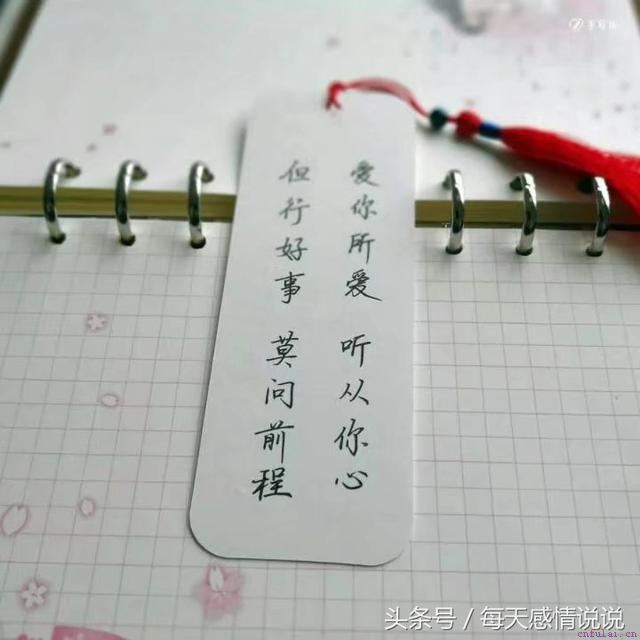 爱你所爱 听从你心
但行好事 莫问前程
头条号 / 每天感情说说
cnfulai.cn